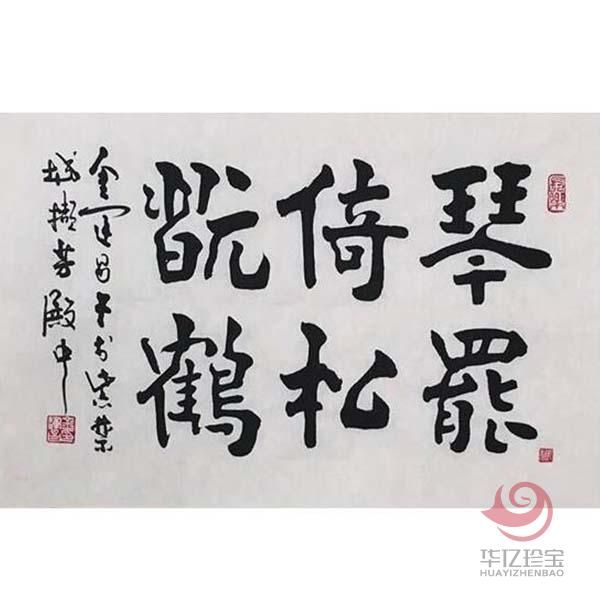 琴罷
倚松
翫鶴
金運昌书紫禁
城擷芳殿中
华亿珍宝
HUAYIZHENBAO